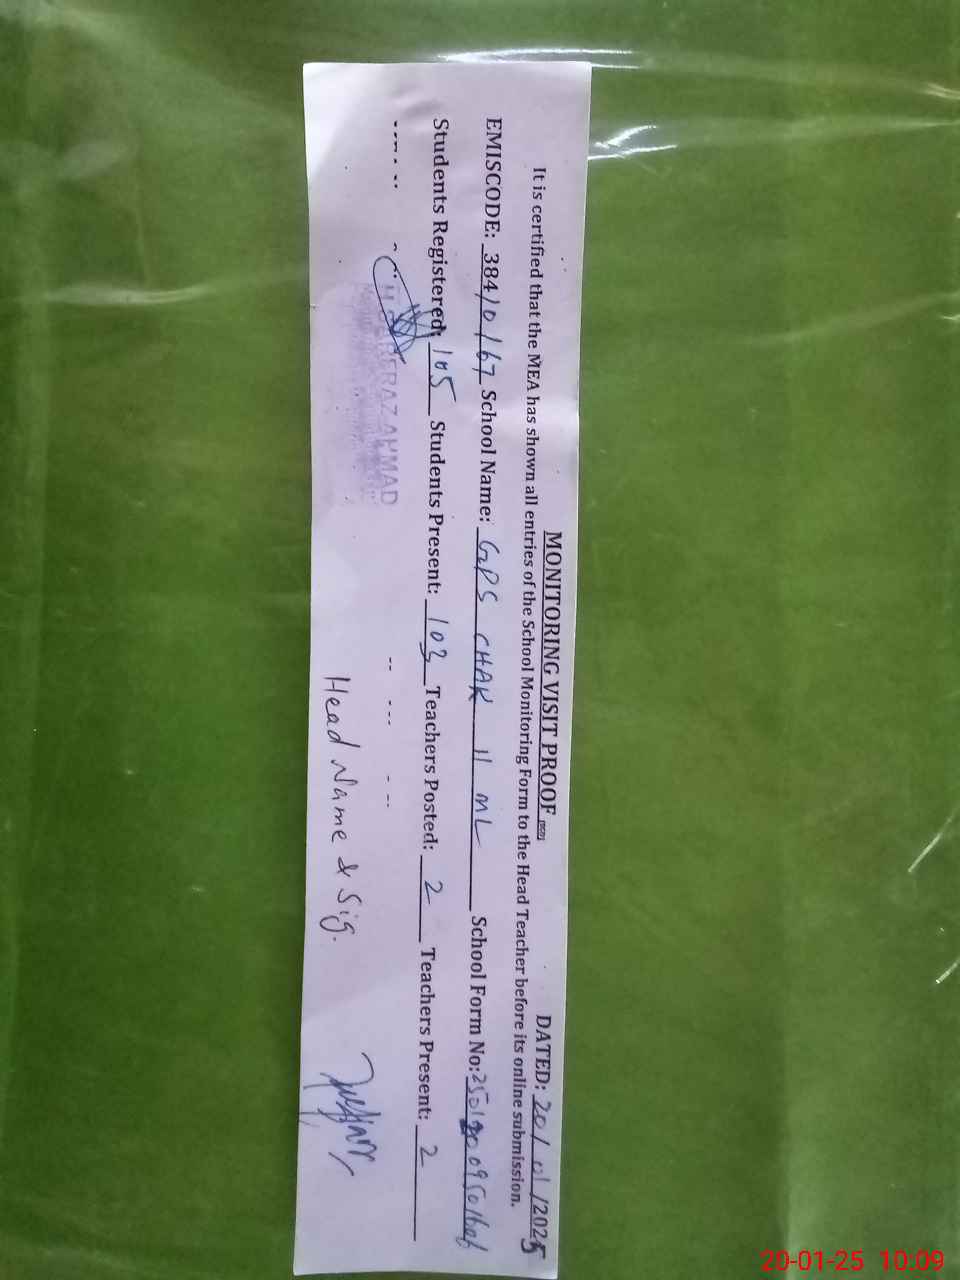 MONITORING VISIT PROOF DATED: 20/01/2025
It is certified that the MEA has shown all entries of the School Monitoring Form to the Head Teacher before its online submission.
EMISCODE: 384/0/67 School Name: GPS CHAK 11 ML School Form No:
Students Registered: 105 Students Present: 103 Teachers Posted: 2 Teachers Present: 2
RAZ AHMAD
Head Name & Sig.
20-01-25 10:09